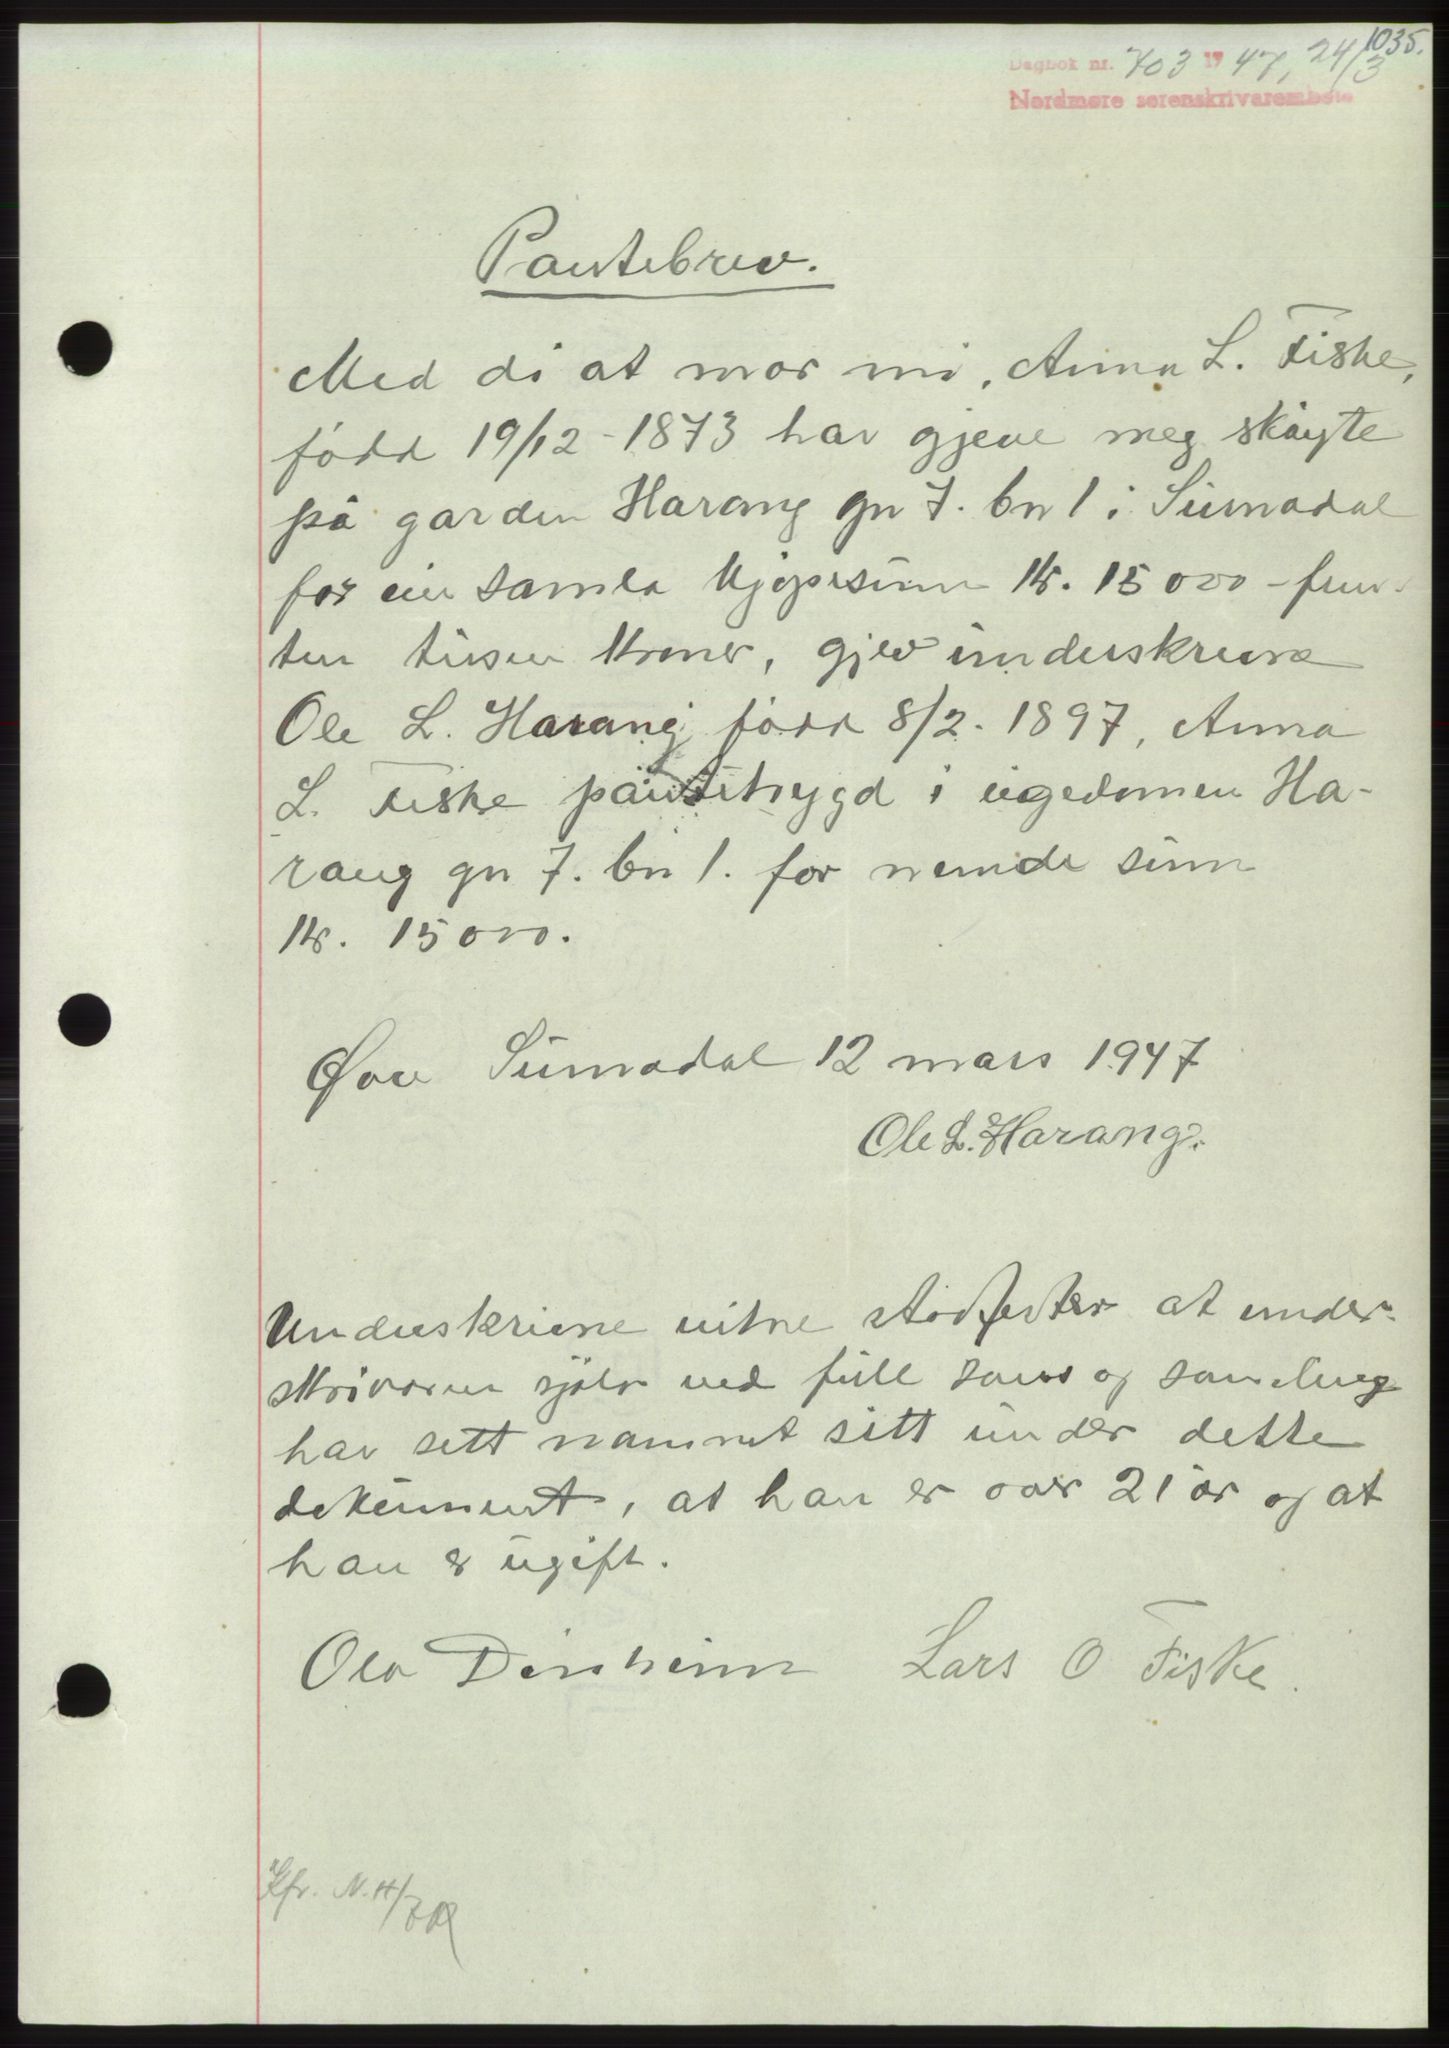 1035.
Dagbok nr. 703 19 47, 24/3
Nordmøre sorenskrivarembete
Pantebrev.
Med di at mor mi, Anna L. Fiske,
född 19/12 - 1873 har gjeve meg skøyte
på garden Harang gn 7. bn 1 i Surnadal
for ein samla kjøpesum kr. 15000 - fem-
ten tusen kroner, gjev underskrivne
Ole L. Harang född 8/2 - 1897, Anna
L. Fiske pantetrygd i eigedomen Ha-
rang gn 7. bn 1. for nemde sum
kr. 15000.
Øvre Surnadal 12 mars 1947
Ole L. Harang.
Underskrivne vitne stadfester at under-
skrivaren sjølv ved full sans og samling
har sett namnet sitt under dette
dokument, at han er over 21 år og at
han er ugift.
Ola Lars O Fiske.
Kfr. N.H/